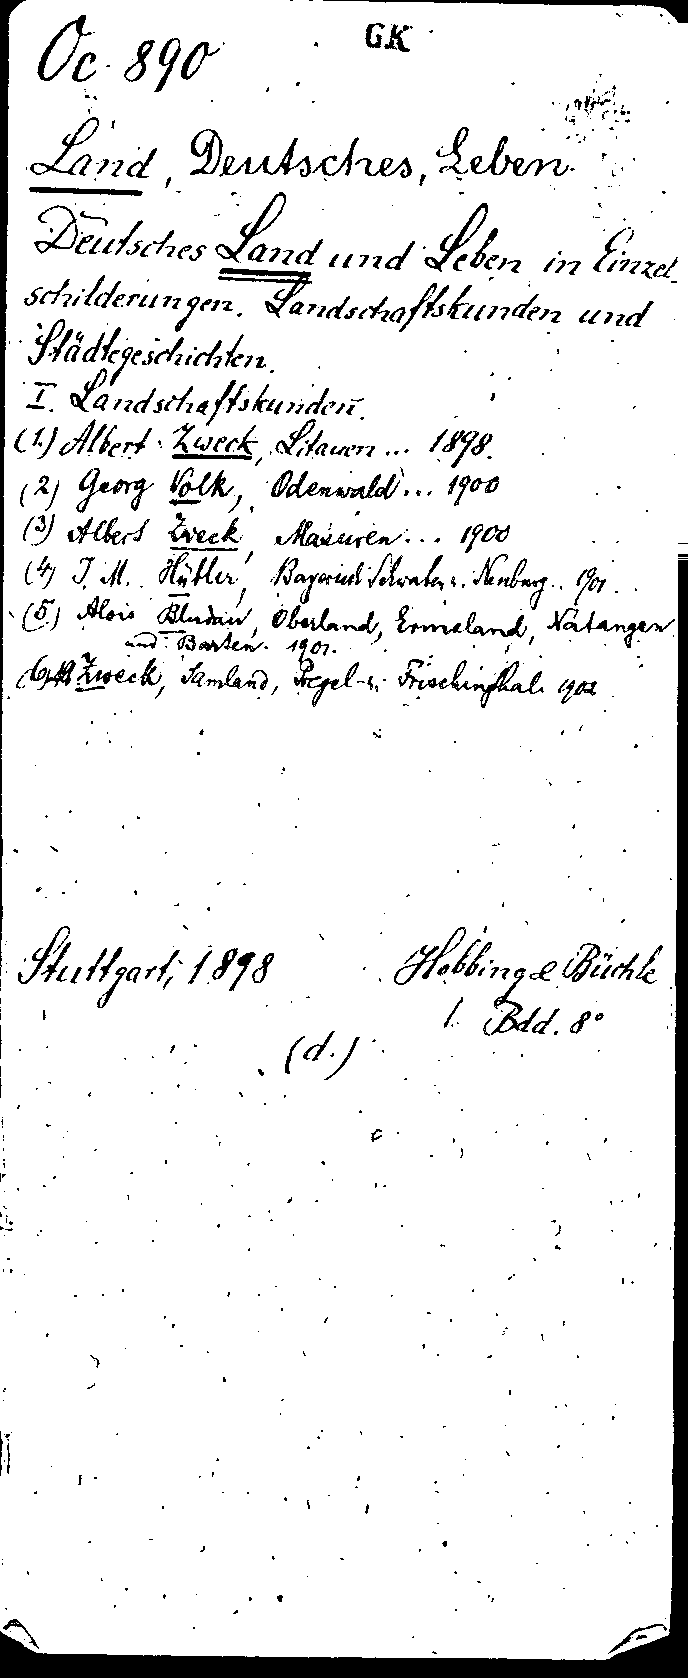 Oc 890
GK
Land, Deutsches, Leben.
Deutsches Land und Leben in Einzel-
schilderungen. Landschaftskunden und
Städtegeschichten.
I. Landschaftskunden.
(1.) Albert Zweck, Litauen ... 1898.
(2) Georg Volk, Odenwald ... 1900
(3) Albert Zweck, Masuren ... 1900
(4) J. M. Hübler, Bayerisch Schwaben u. Neuburg .. 1901.
(5.) Alois Bludau, Oberland, Ermeland, Natangen
und Barten. 1901.
(6) A Zweck, Samland, Pregel- u. Frischingthal. 1902
Stuttgart, 1898
Hobbing & Büchle
1. Bdd. 8°
(d.)